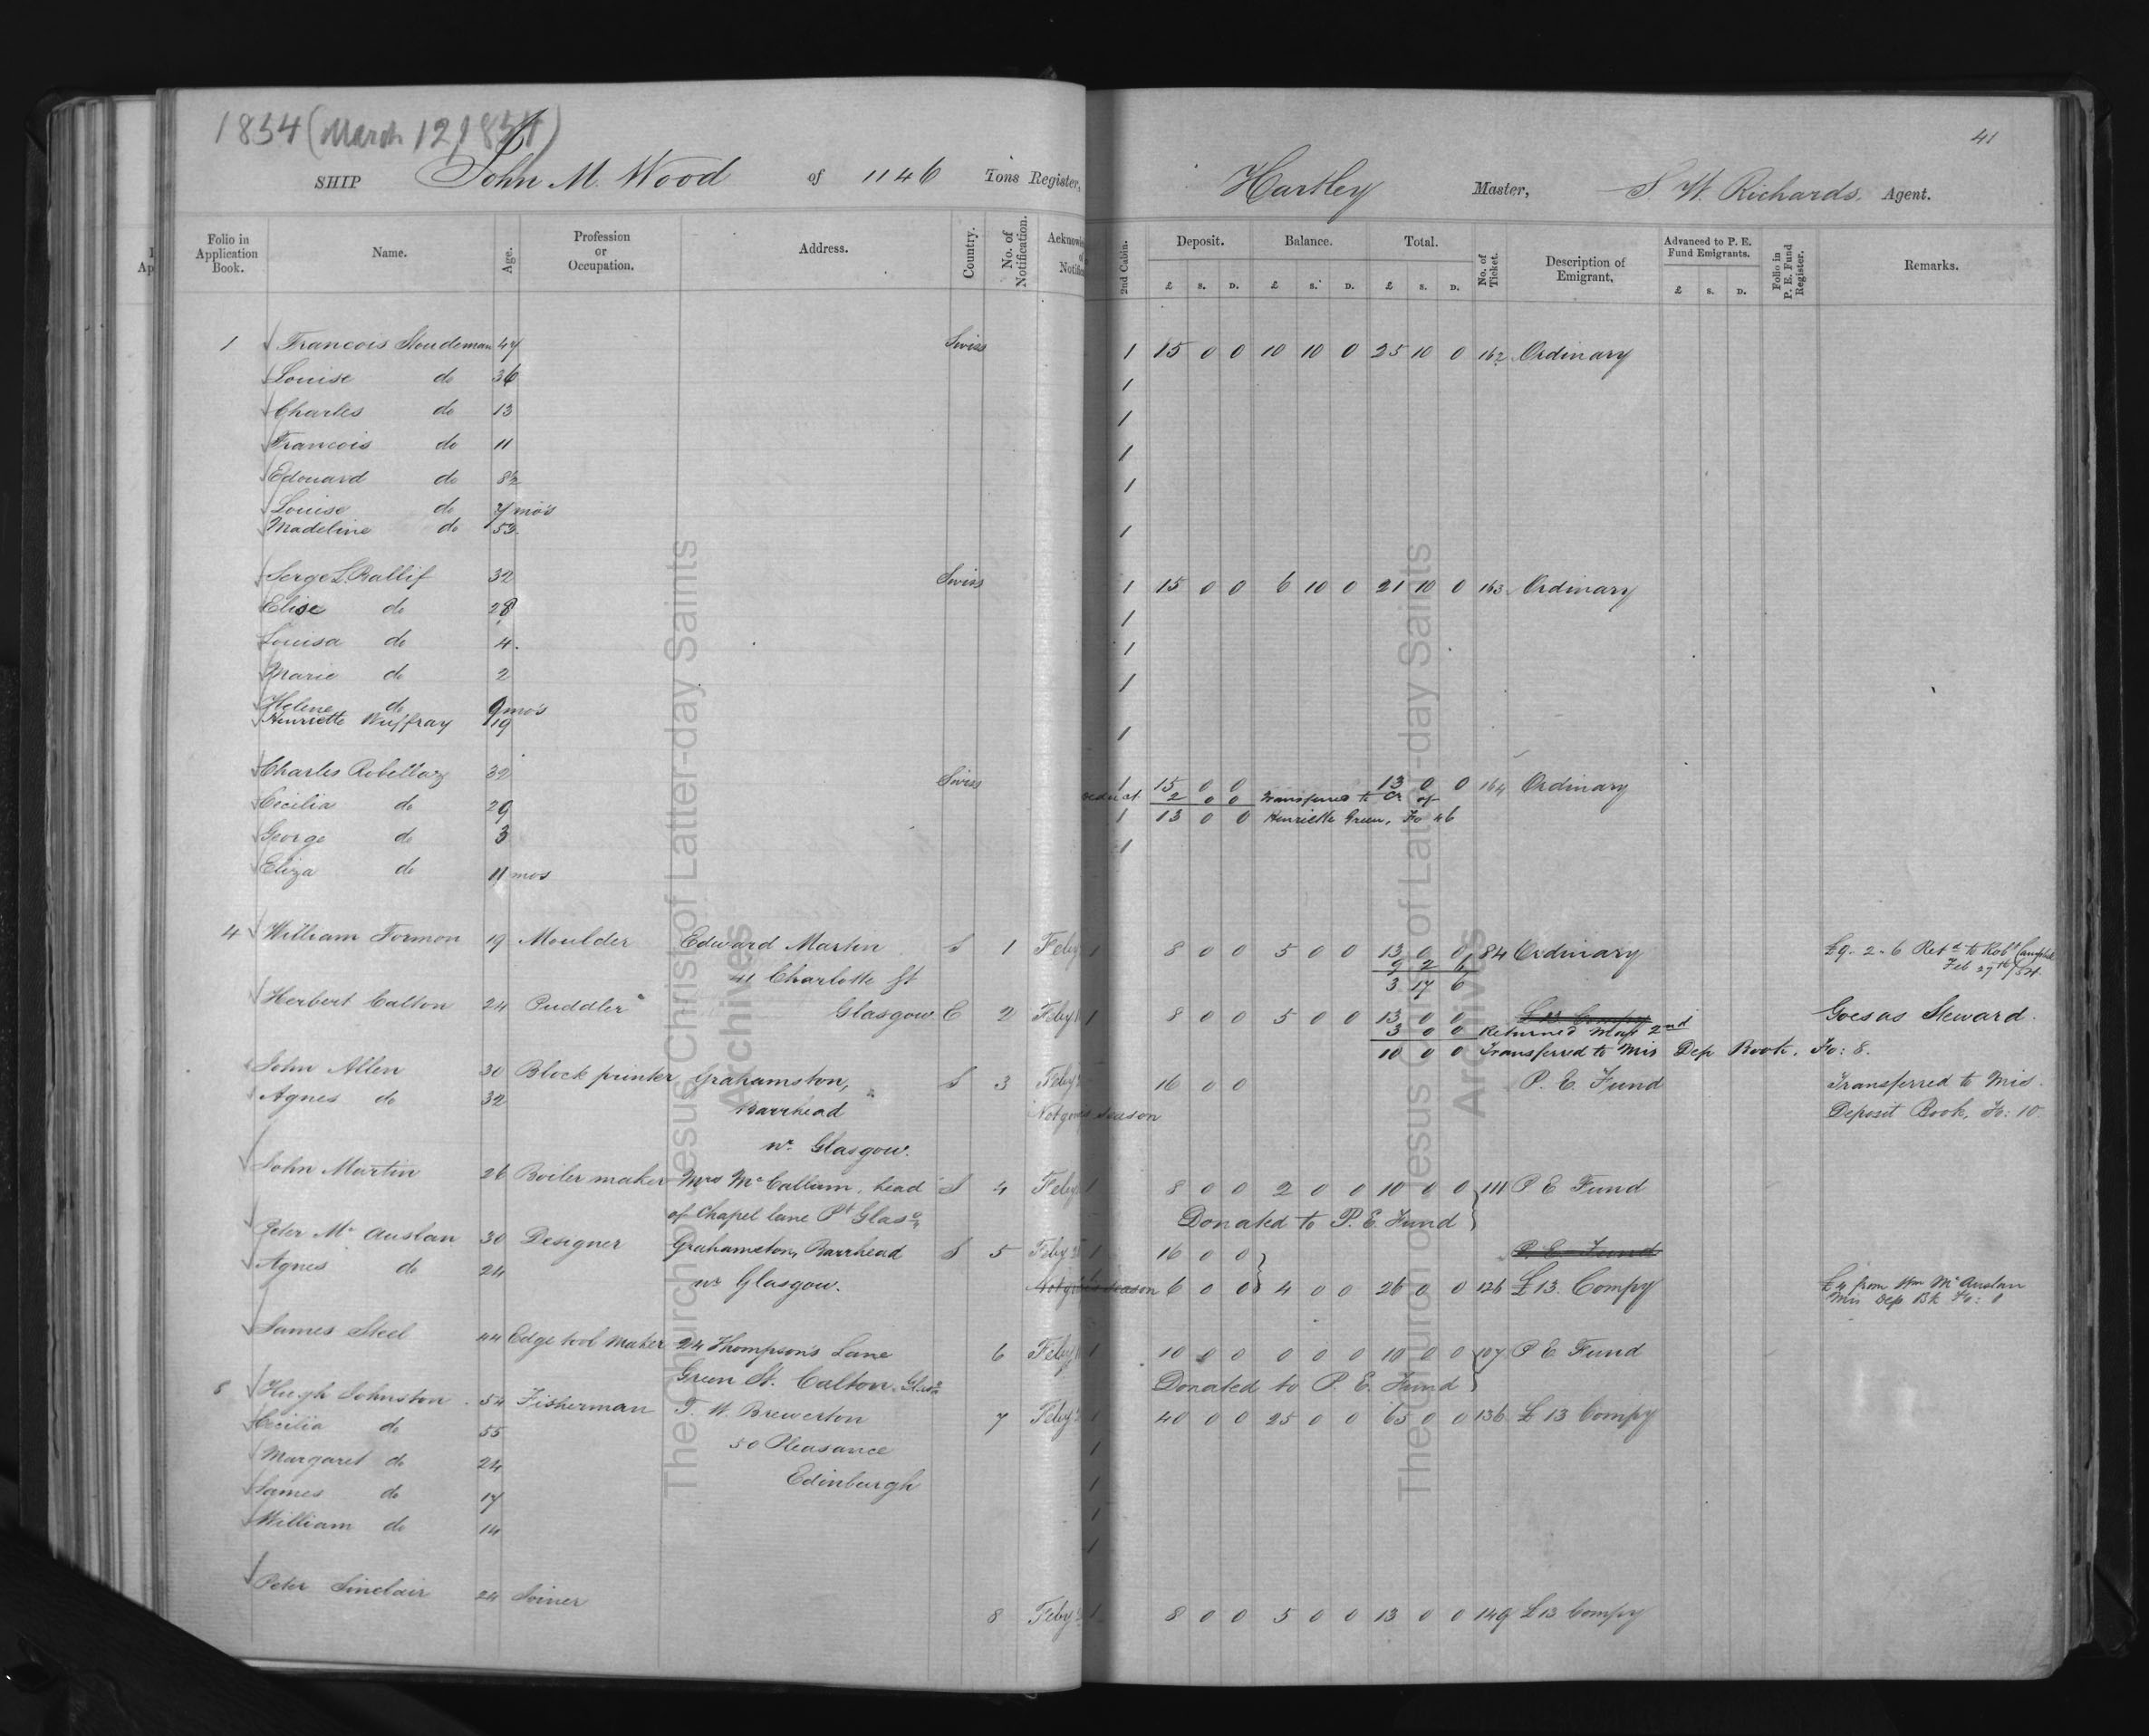 1854 (March 12, 1854)
41
SHIP John M. Wood of 1146 Tons Register, Hartley Master, S. W. Richards. Agent.
Folio in Application Book. Name. Age. Profession or Occupation. Address. Country. No. of Notification. 2nd Cabin. Deposit. Balance. Total. No. of Ticket. Description of Emigrant. Advanced to P. E. Fund Emigrants. Folio in P. E. Fund Register. Remarks.
£ S. D. £ S. D. £ S. D. £ S. D.
1 Francois Stoudeman 47 Swiss 1 15 0 0 10 10 0 25 10 0 162 Ordinary
Louise do 36 1
Charles do 13 1
Francois do 11 1
Edouard do 8½ 1
Louise do 7 mo's
Madeline do 53. 1
Serge L. Ballif 32 Swiss 1 15 0 0 6 10 0 21 10 0 163 Ordinary
Elise do 28 1
Louisa do 4. 1
Marie do 2 1
Helene do 9 mo's
Henriette 19 1
Charles Robellaz 32 Swiss 1 15 0 0 13 0 0 164 Ordinary
Cecilia do 29 deduct 2 0 0 Transferred to Cr of
1 13 0 0 Henriette Green, Fo 46
George do 3 1
Eliza do 11 mos
4 William Formon 19 Moulder Edward Martin S 1 Feby 1 8 0 0 5 0 0 13 0 0 84 Ordinary £9-2-6 Retd to Robt Campbell
41 Charlotte St 9 2 6 Feb 27th/54.
3 17 6
Herbert Calton 24 Puddler Glasgow E 2 Feby 1 8 0 0 5 0 0 13 0 0 £13 Compy Goes as Steward.
3 0 0 Returned 2nd
10 0 0 Transferred to Mis Dep Book. Fo: 8.
John Allen 30 Block printer Grahamston, S 3 Feby 16 0 0 P. E. Fund Transferred to Mis.
Agnes do 32 Barrhead Not season Deposit Book, Fo: 10
nr Glasgow.
John Martin 26 Boiler maker Mrs McCallum, head S 4 Feby 1 8 0 0 2 0 0 10 0 0 111 P E Fund
of Chapel lane Pt Glasgo Donated to P. E. Fund
Peter McAuslan 30 Designer Grahamston, Barrhead S 5 Feby 1 16 0 0 P. E. Fund
Agnes do 24 nr Glasgow. Not season 6 0 0 4 0 0 26 0 0 126 £13. Compy £4 from Wm McAuslan
Mis Dep Bk Fo: 1
James Steel 44 Edge tool maker 24 Thompson's Lane 6 Feby 1 10 0 0 0 0 0 10 0 0 107 P E Fund
Green St. Calton. Glasgo Donated to P. E. Fund
8 Hugh Johnston 54 Fisherman T. W. Brewerton 7 Feby 1 40 0 0 25 0 0 65 0 0 136 £13 Compy
Cecilia do 55 50 Pleasance 1
Margaret do 24 Edinburgh 1
James do 17 1
William do 14 1
Peter Sinclair 24 Joiner 8 Feby 1 8 0 0 5 0 0 13 0 0 149 £13 Compy
The Church of Jesus Christ of Latter-day Saints
Archives
The Church of Jesus Christ of Latter-day Saints
Archives